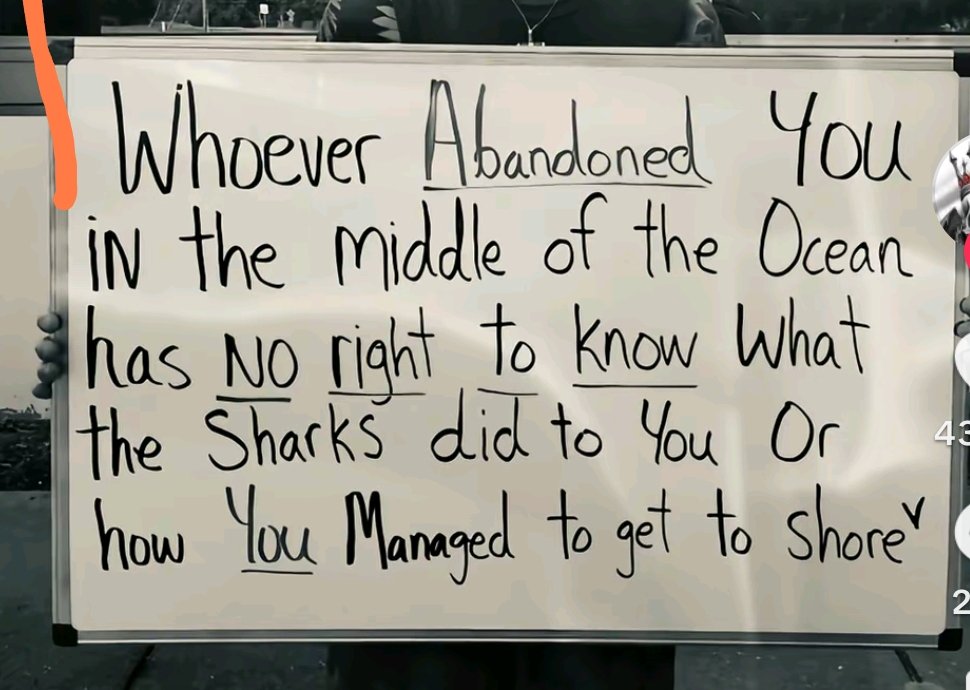 Whoever Abandoned You
iN the Middle of the Ocean
has NO right to know What
the Sharks did to You Or
how You Managed to get to Shore
43
2